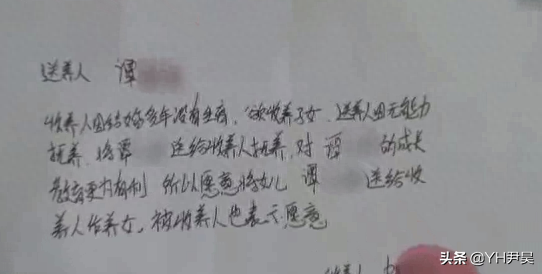 送养人 谭
收养人因结婚多年没有生育，欲收养子女，送养人因无能力
抚养，将覃 送给收养人抚养，对 谭 的成长
教育更为有利 所以愿意将女儿 谭 送给收
养人作养女，被收养人也表示愿意
头条 @YH尹吴